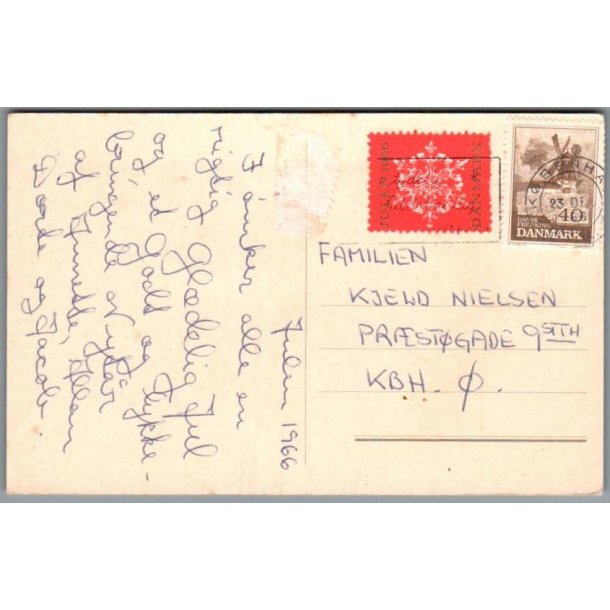 Julen 1966
I ønsker alle en
rigtig Glædelig Jul
og et Godt og Lykke-
bringende Nytår
af Annette, Allan
Dorde og Jacob.
JULEN 1966
DANMARK
KØBENHA
23. DE
40
DANSK
FREDNING
DANMARK
FAMILIEN
KJELD NIELSEN
PRÆSTØGADE 9 5TH
KBH. Ø.